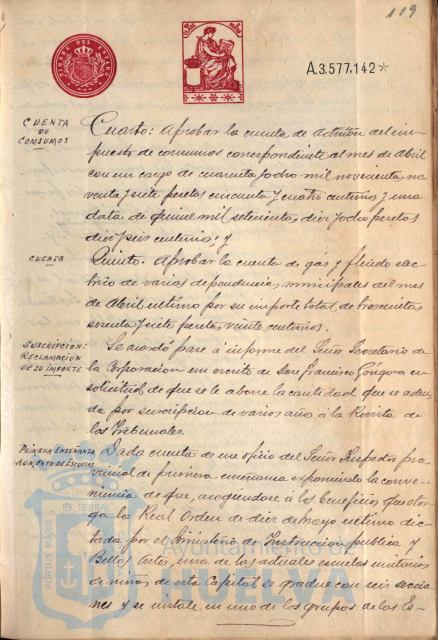 119
TIMBRE DEL ESTADO
A.3.577.142*
CUENTA
DE
CONSUMOS
Cuarto: Aprobar la cuenta de del im-
puesto de consumos correspondiente al mes de Abril
con un cargo de cuarenta y ocho mil novecientas no-
venta y siete pesetas cincuenta y cuatro centimos y una
data de quince mil setecientas diez y ocho pesetas
diez y seis centimos; y
CUENTA
Quinto. Aprobar la cuenta de gas y fluido elec-
trico de varias dependencias municipales del mes
de Abril ultimo por su importe total de trescientas
sesenta y siete pesetas, veinte centimos.
SUSCRIPCION:
RECLAMACIÓN
DE SU IMPORTE
Se acordó pase á informe del Señor Secretario de
la Corporacion un escrito de Don Francisco Góngora en
solicitud de que se le abone la cantidad que se adeu-
da por suscripcion de varios años á la Revista de
los Tribunales.
PRIMERA ENSEÑANZA
AUMENTO DE ESCUELAS
Dada cuenta de un oficio del Señor Inspector pro-
vincial de primera enseñanza exponiendo la conve-
niencia de que, acogiendose á los beneficios que otor-
ga la Real Orden de diez de Mayo ultimo dic-
tada por el Ministerio de Instruccion publica y
Bellas Artes, una de las actuales escuelas unitarias
de niños de esta Capital se gradue con seis seccio-
nes y se instale en uno de los grupos de las Es-
PORTUS MARIS
ET TERRÆ
Ayuntamiento de
HUELVA